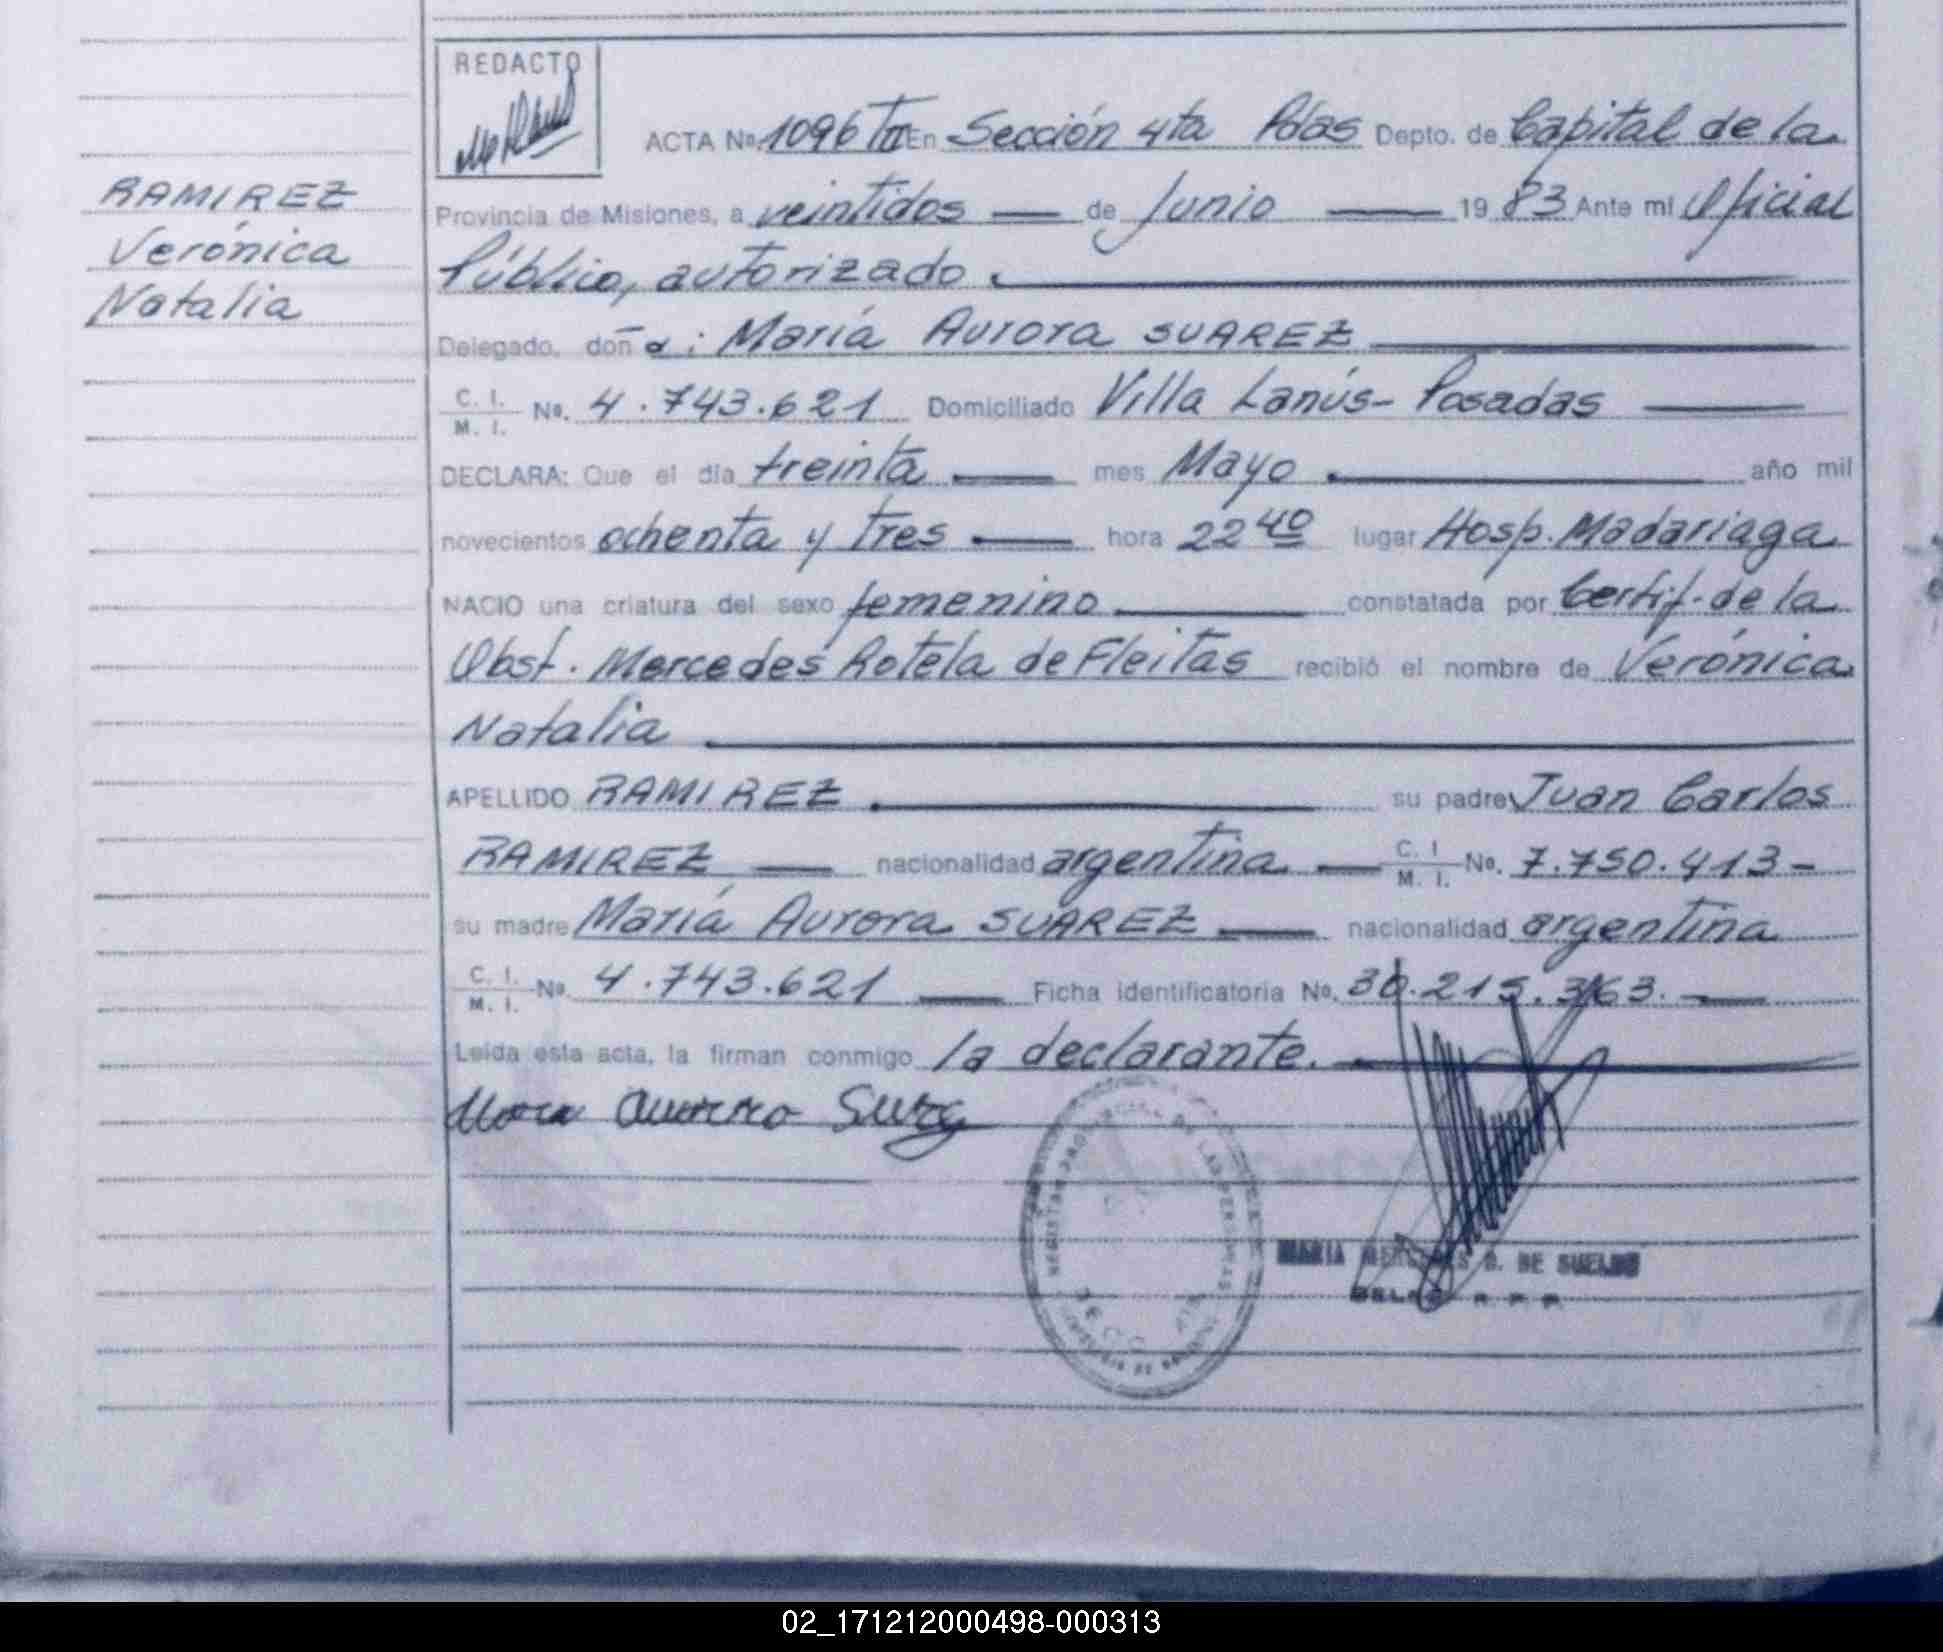 REDACTO
ACTA Nº. 1096 TºII En Sección 4ta Pdas Depto. de Capital de la
RAMIREZ
Verónica
Natalia
Provincia de Misiones, a veintidos — de Junio — 19 83 Ante mi Oficial
Público, autorizado.
Delegado, doña: María Aurora SUAREZ
C. I. M. I. Nº. 4.743.621 Domiciliado Villa Lanús - Posadas
DECLARA: Que el día treinta — mes Mayo. año mil
novecientos ochenta y tres — hora 22 40 lugar Hosp. Madariaga
NACIO una criatura del sexo femenino constatada por Certif. de la
Obst. Mercedes Rotela de Fleitas recibió el nombre de Verónica
Natalia
APELLIDO RAMIREZ. su padre Juan Carlos
RAMIREZ, — nacionalidad argentina — C. I M. I. Nº. 7.750.413 -
su madre María Aurora SUAREZ — nacionalidad argentina
C. I. M. I. Nº. 4.743.621 — Ficha identificatoria Nº. 30.215.363. —
Leída esta acta, la firman conmigo la declarante.
MARIA S. DE
02_171212000498-000313